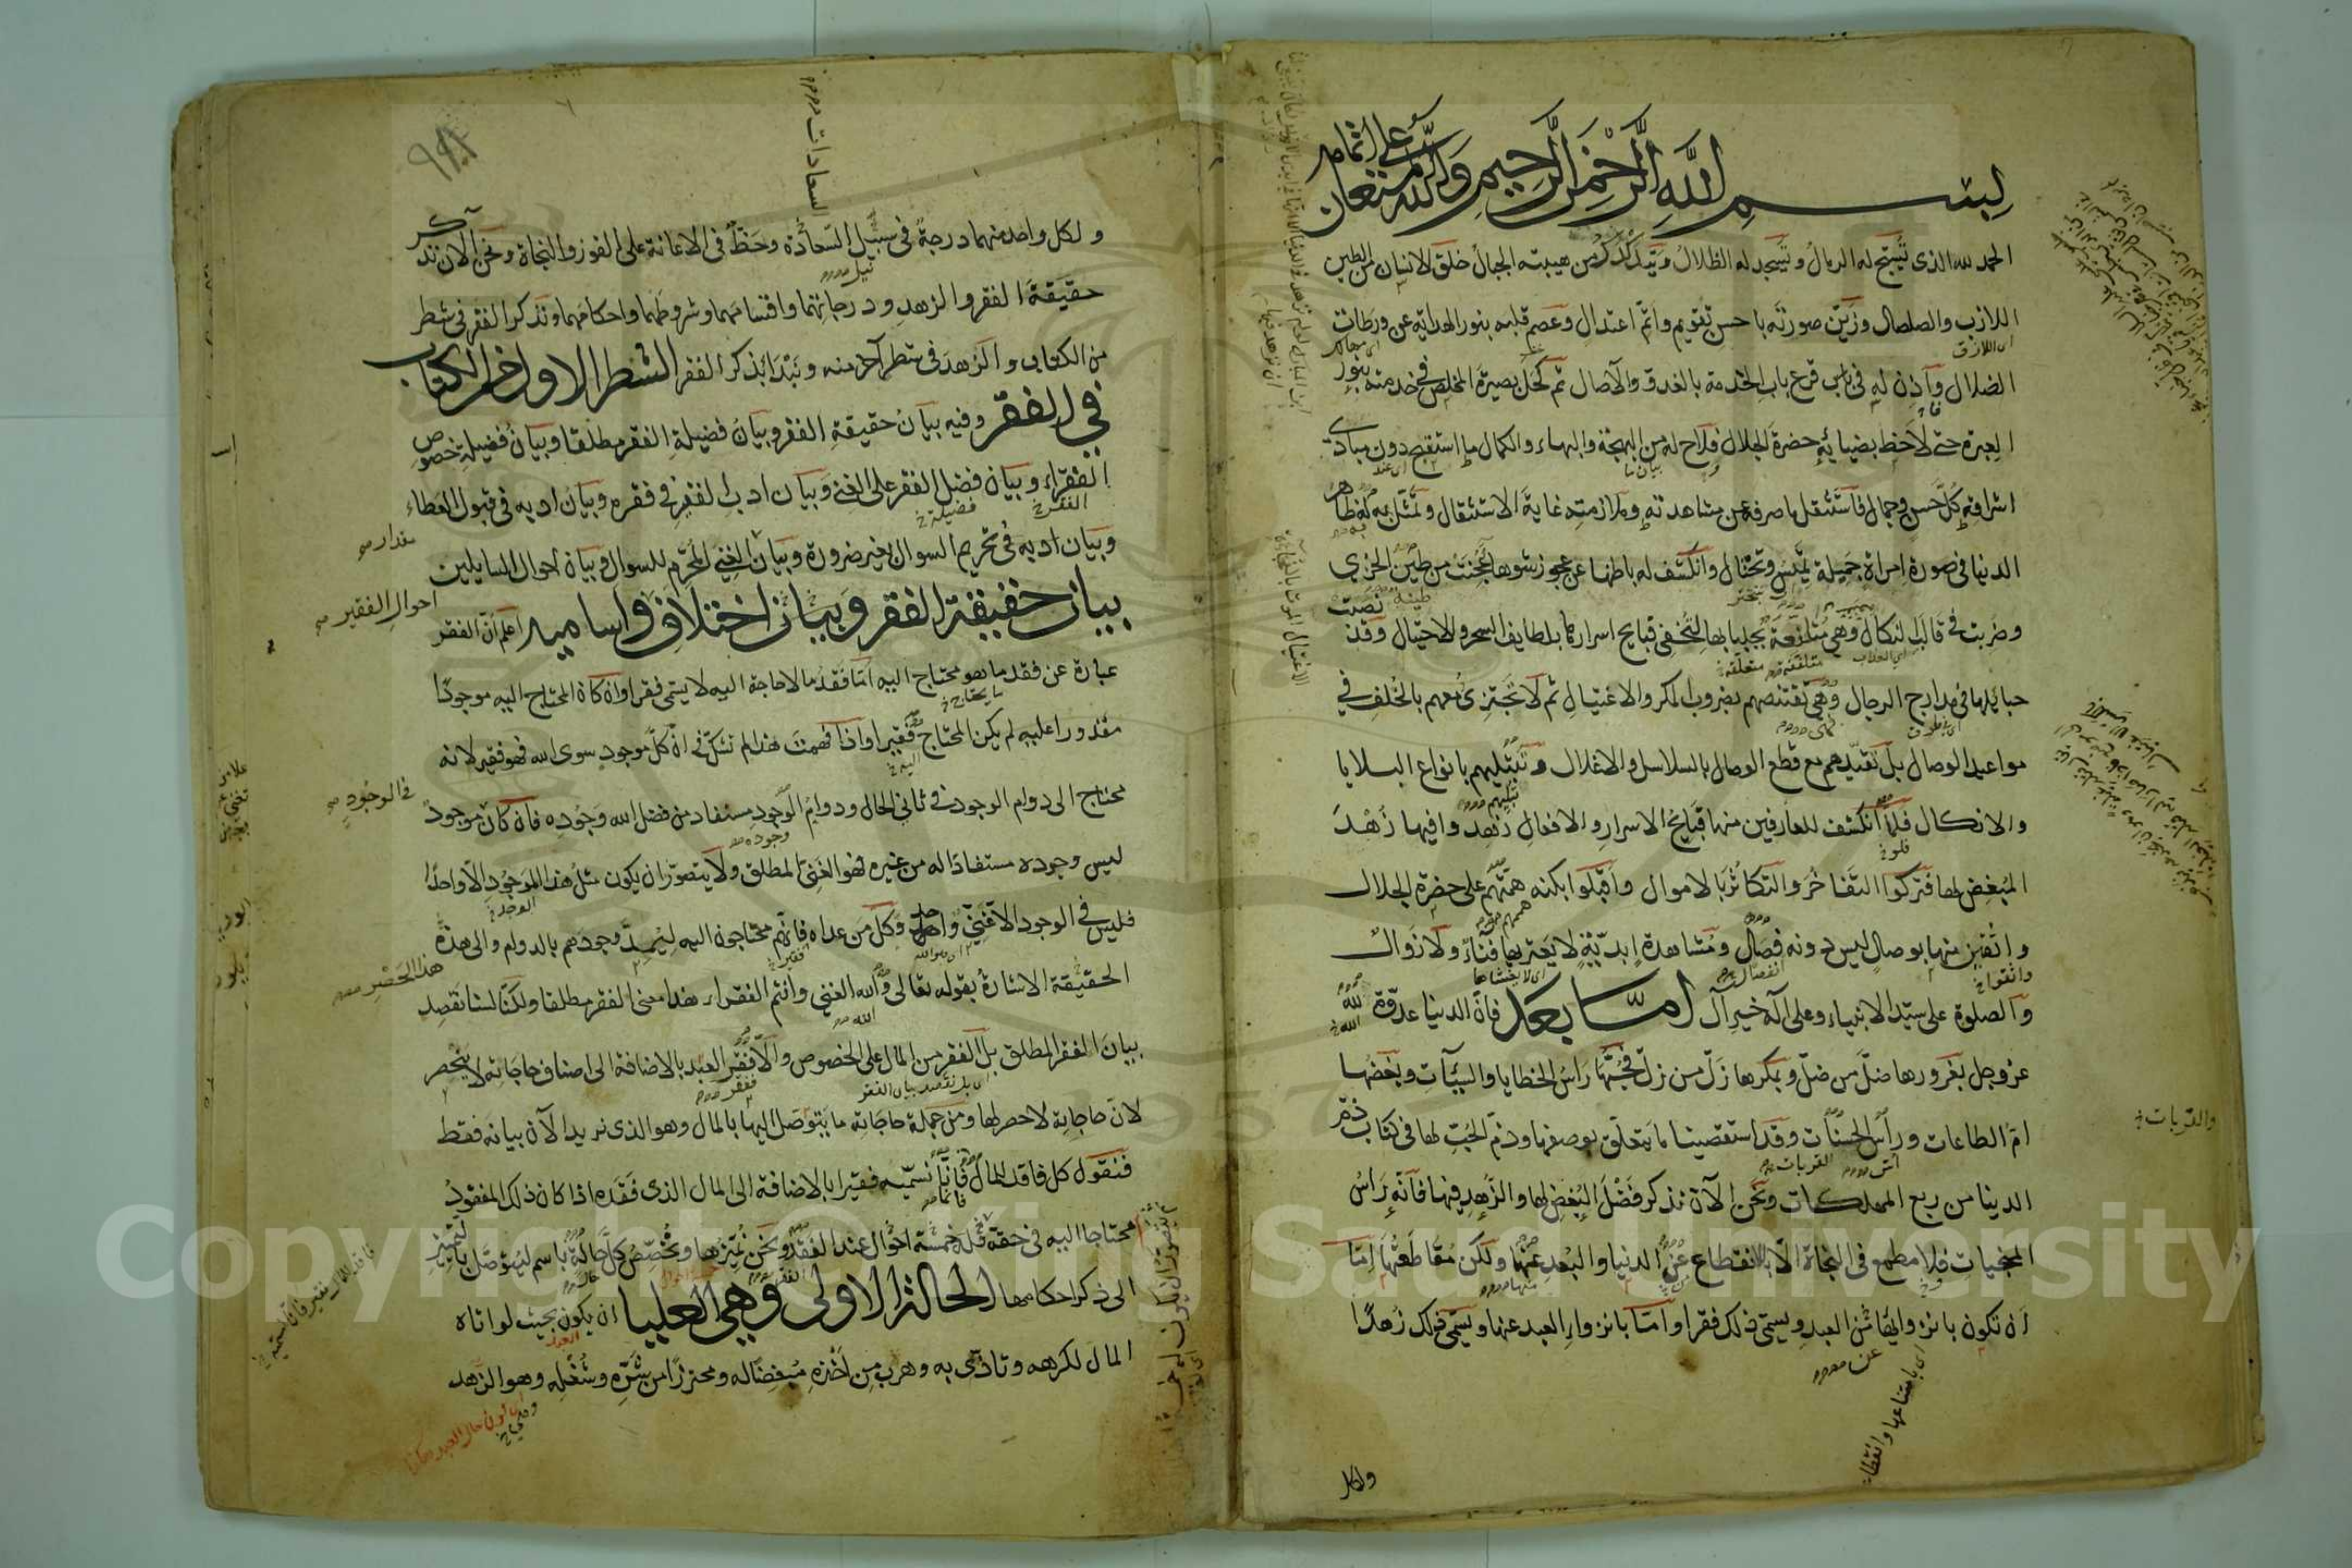 بسم الله الرحمن الرحيم والله المستعان على اتمامه
الحمد لله الذى تسبح له الرمال وتسجد له الظلال وتتدكدك من هيبته الجبال خلق الانسان من الطين
اللازب والصلصال وزين صورته باحسن تقويم واتم اعتدال وعصم قلبه بنور الهداية عن ورطات
الضلال وآذن له فى قرع باب الخدمة بالغدو والآصال ثم كحل بصيرة المخلص فى خدمته بنور
العبرة حتى لاحظ بضيائه حضرة الجلال فلاح له من البهجة والبهاء والكمال ما استقبح دون مبادى
اشراقه كل حسن وجمال فاستثقل ما صرفه عن مشاهدته وملازمته غاية الاستثقال وتمثل له ظاهر
الدنيا فى صورة امراة جميلة تميس وتختال وانكشف له باطنها عن عجوز شوهاء عجنت من طين الخزى
وضربت فى قالب النكال وهى متلفعة بجلبابها لتخفى قبايح اسرارها بلطايف السحر والاحتيال وقد نصبت
حبائلها فى مدارج الرجال وهى تقتنصهم بضروب المكر والاغتيال ثم لا تجتزئ معهم بالخلف فى
مواعيد الوصال بل تقيدهم مع قطع الوصال بالسلاسل والاغلال وتبتليهم بانواع البلايا
والانكال فلما انكشف للعارفين منها قبايح الاسرار والافعال زهدوا فيها زهد
المبغض لها فتركوا التفاخر والتكاثر بالاموال واقبلوا بكنه همتهم على حضرة الجلال
واثقين منها بوصال ليس دونه فصال ومشاهدة ابدية لا يعتريها فناء ولا زوال
والصلوة على سيد الانبياء وعلى آله خير آل اما بعد فان الدنيا عدوة لله
عز وجل بغرورها ضل من ضل وبمكرها زل من زل فحبها راس الخطايا والسيئات وبغضها
ام الطاعات وراس الحسنات وقد استقصينا ما يتعلق بوصفها وذم الحب لها فى كتاب ذم
الدنيا من ربع المهلكات ونحن الآن نذكر فضل البغض لها والزهد فيها فانه راس
المنجيات فلا مطمع فى النجاة الا بالانقطاع عن الدنيا والبعد عنها ولكن مقاطعتها اما
ان تكون بانزوائها عن العبد ويسمى ذلك فقرا واما بانزواء العبد عنها ويسمى ذلك زهدا
والقربات
ولكل
ولكل واحد منهما درجة فى سبيل السعادة وحظ فى الاعانة على الفوز والنجاة ونحن الآن نذكر
حقيقة الفقر والزهد ودرجاتهما واقسامهما وشروطهما واحكامهما ونذكر الفقر فى شطر
من الكتاب والزهد فى شطر آخر منه ونبدا بذكر الفقر الشطر الاول من الكتاب
فى الفقر وفيه بيان حقيقة الفقر وبيان فضيلة الفقر مطلقا وبيان فضيلة خصوص
الفقراء وبيان فضل الفقر على الغنى وبيان ادب الفقير فى فقره وبيان ادبه فى قبول العطاء
وبيان ادبه فى تحريم السوال بغير ضرورة وبيان الغنى المحرم للسوال وبيان احوال السايلين
بيان حقيقة الفقر وبيان اختلاف اساميه اعلم ان الفقر
عبارة عن فقد ما هو محتاج اليه اما فقد ما لا حاجة اليه لا يسمى فقرا وان كان المحتاج اليه موجودا
مقدورا عليه لم يكن المحتاج فقيرا واذا فهمت هذا لم تشك فى ان كل موجود سوى الله فهو فقير لانه
محتاج الى دوام الوجود فى ثانى الحال ودوام الوجود مستفاد من فضل الله وجوده فان كان موجود
ليس وجوده مستفادا له من غيره فهو الغنى المطلق ولا يتصور ان يكون مثل هذا الموجود الا واحدا
فليس فى الوجود الا غنى واحد وكل من عداه فانهم محتاجون اليه ليمد وجودهم بالدوام والى هذه
الحقيقة الاشارة بقوله تعالى والله الغنى وانتم الفقراء هذا معنى الفقر مطلقا ولكنا لسنا نقصد
بيان الفقر المطلق بل الفقر من المال على الخصوص والا ففقر العبد بالاضافة الى اصناف حاجاته لا ينحصر
لان حاجاته لا حصر لها ومن جملة حاجاته ما يتوصل اليها بالمال وهو الذى نريد الآن بيانه فقط
فنقول كل فاقد للمال فانا نسميه فقيرا بالاضافة الى المال الذى فقده اذا كان ذلك المفقود
محتاجا اليه فى حقه فله خمسة احوال عند الفقر ونحن نميزها ونخصص كل حالة باسم ليتوصل بالتمييز
الى ذكر احكامها الحالة الاولى وهى العليا ان يكون بحيث لو اتاه
المال لكرهه وتاذى به وهرب من اخذه مبغضا له ومحترزا من شره وشغله وهو الزهد
السعادات
مقدار
احوال الفقير
فى الوجود
هذا الحصر